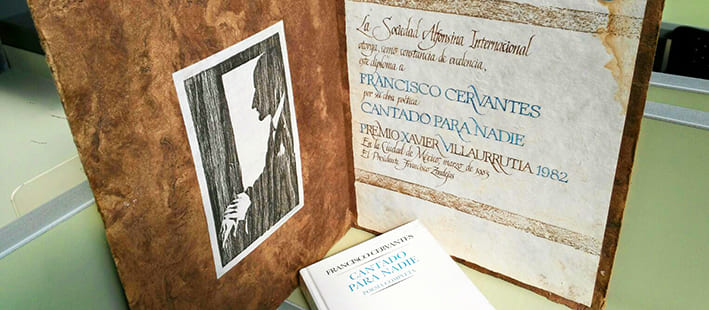 La Sociedad Alfonsina Internacional
otorga, como constancia de excelencia,
este diploma a
FRANCISCO CERVANTES
por su obra poética
CANTADO PARA NADIE
PREMIO XAVIER VILLAURRUTIA 1982
En la Ciudad de México, marzo de 1983
El Presidente Francisco Zendejas
FRANCISCO CERVANTES
CANTADO
PARA NADIE
POESÍA COMPLETA